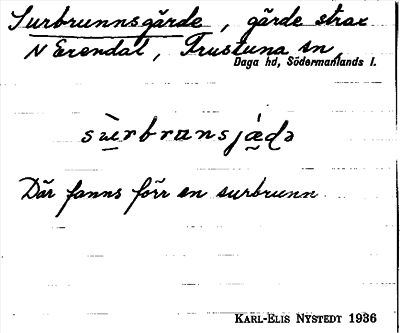 Surbrunnsgärde, gärde strax
N Erendal, Frustuna sn,
Daga hd, Södermanlands l.
sùrbrunsjæ̀də
Där fanns förr en surbrunn
KARL-ELIS NYSTEDT 1936